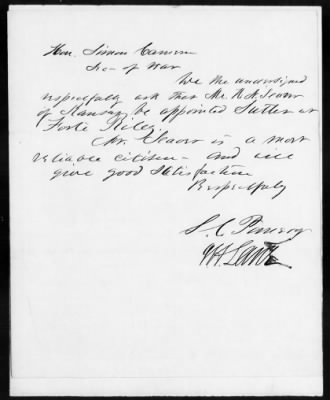 Hon. Simon Cameron
Sec of War
We the undersigned
respectfully ask that Mr. R. H. Seaver
of Kansas, be appointed Sutler at
Forte Riley
Mr. Seaver is a most
reliable citizen - and will
give good Satisfaction
Respectfully
S. C. Pomeroy
J H Lane